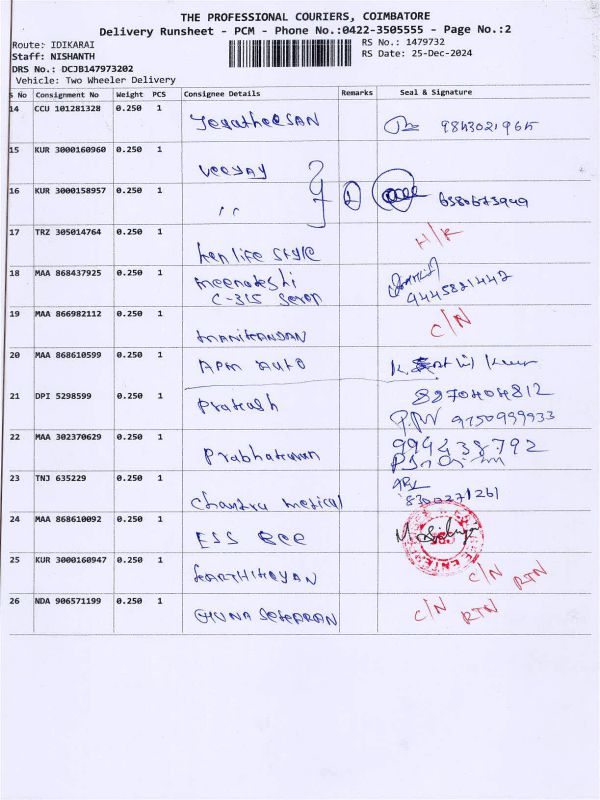 THE PROFESSIONAL COURIERS, COIMBATORE
Delivery Runsheet - PCM - Phone No.:0422-3505555 - Page No.:2
Route: IDIKARAI
RS No.: 1479732
Staff: NISHANTH
RS Date: 25-Dec-2024
DRS No.: DCJB147973202
Vehicle: Two Wheeler Delivery
S No Consignment No Weight PCS Consignee Details Remarks Seal & Signature
14 CCU 101281328 0.250 1 JegatheeSAN
15 KUR 3000160960 0.250 1 veejay
16 KUR 3000158957 0.250 1 ,, 2 6380673949
17 TRZ 305014764 0.250 1 life style H/K
18 MAA 868437925 0.250 1 meenatcshi
C-315 9445821442
19 MAA 866982112 0.250 1 MANIKANDAN C/N
20 MAA 868610599 0.250 1 APM AUTO
8870404812
21 DPI 5298599 0.250 1 Prakash 9750999933
22 MAA 302370629 0.250 1 Prabhakaran 994438792
23 TNJ 635229 0.250 1 Chandra medical 8300271261
24 MAA 868610092 0.250 1 ESS BEE
25 KUR 3000160947 0.250 1 KARTHIKEYAN C/N RTN
26 NDA 906571199 0.250 1 GHUNA SEKARAN C/N RTN